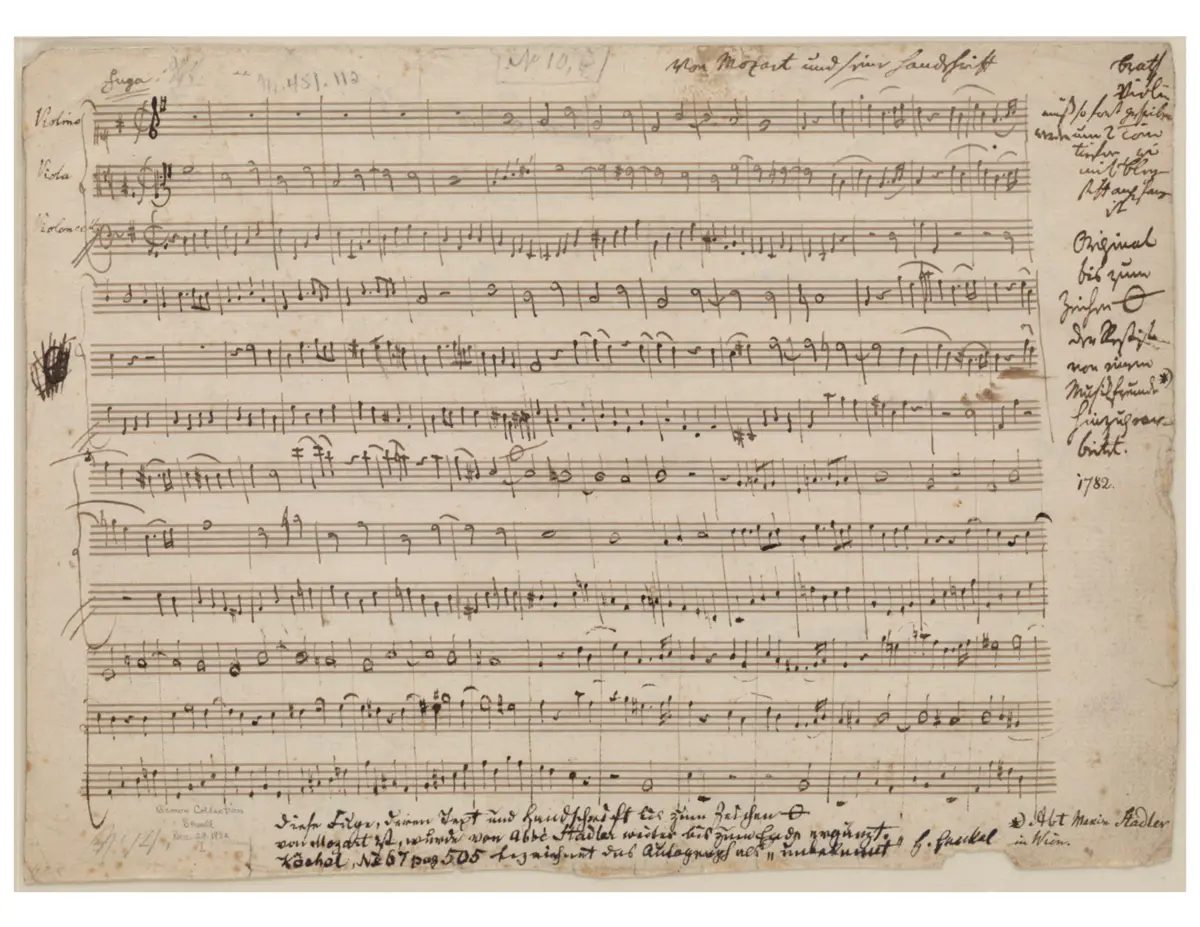 Fuga.
M.451.112
[No 10,
Von Mozart und seiner Handschrift
Violino
Viola
Violoncello
Bratsch
Violin
muß so fort geschrieben
werden um 2
tiefer, wie
mit
ist
Original
bis zum
Zeichen
der Rest ist
von einem
Musikfreunde *)
hinzugear-
beitet.
1782.
Brown Collection
Diese Fuge, deren Text und Handschrift bis zum Zeichen
von Mozart ist, wurde von Abbé Stadler weiter bis zum Ende ergänzt.
Köchel, No 67 pag 505 bezeichnet das Autograph als „unbekannt"
*) Abt Maxim Stadler
in Wien.